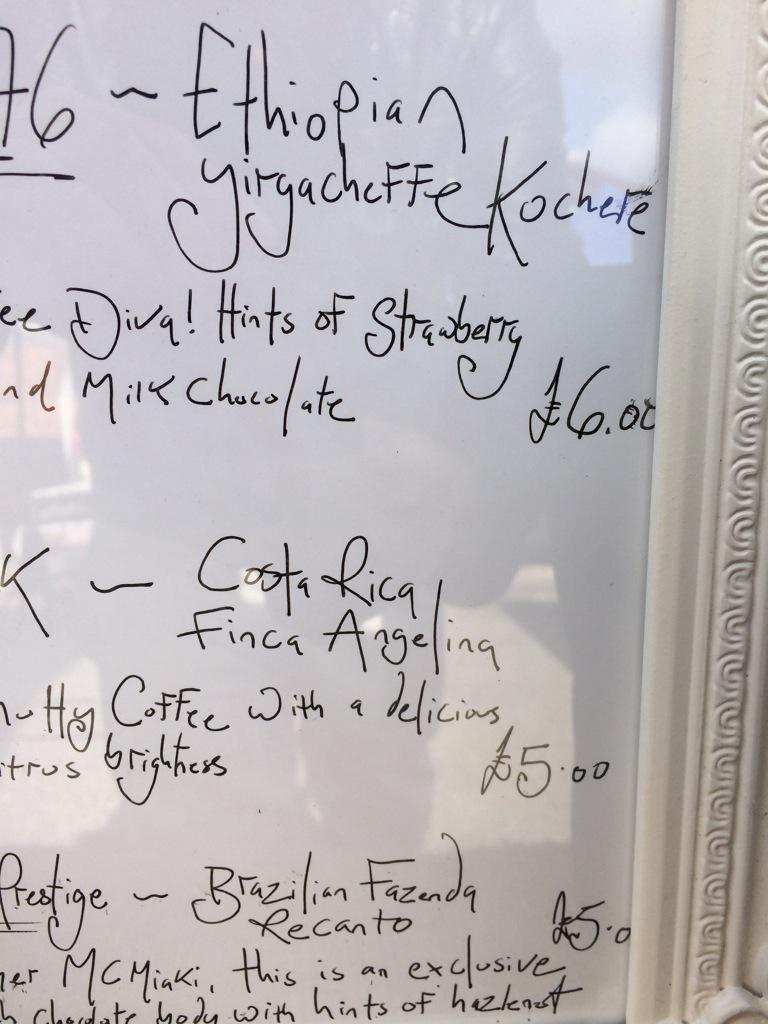 76 ~ Ethiopian
Yirgacheffe Kochere
ee Diva! Hints of Strawberry
nd Milk Chocolate £6.00
K ~ Costa Rica
Finca Angelina
nutty Coffee with a delicious
itrus brightness £5.00
Prestige ~ Brazilian Fazenda
Recanto £5.0
her MCMiaki, this is an exclusive
h Chocolate body with hints of hazlenut